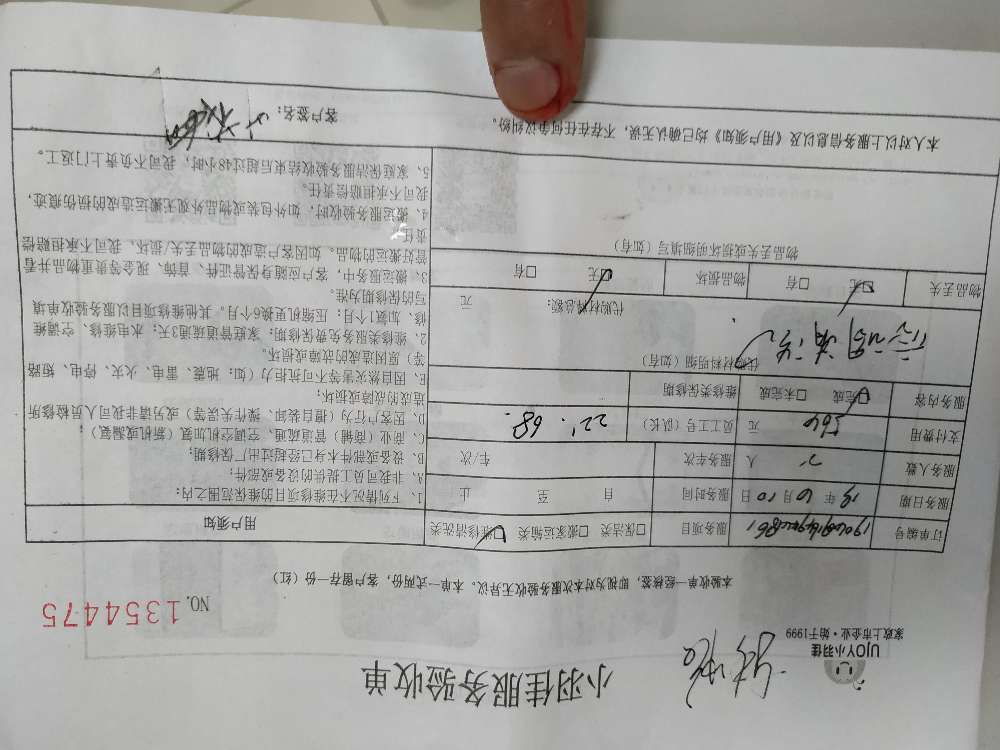 小羽佳服务验收单
UJOY小羽佳
家政上市企业·始于1999
NO. 1354475
本验收单一经核签，即视为对本次服务验收无异议。本单一式两份，客户留存一份（红）
订单编号
服务项目 □保洁类 □搬家运输类 ☑维修清洗类
服务日期 19年6月10日 服务时间 自 至 止
服务人数 2 人 服务车次 车/次
支付费用 564 元 员工工号（队长） 22168.
服务内容 ☑完成 □未完成 维修类保修期
代购材料明细（如有）
代购材料总额： 元
物品丢失 ☑无 □有 物品损坏 ☑无 □有
物品丢失或损坏明细填写（如有）
用户须知
1、下列情况不在维修项目的维保范围之内：
A、非我司员工提供的设备或部件；
B、设备或部件本身已经超过出厂保修期；
C、商业（商铺）管道疏通、空调空机加氟（新机或漏氟）；
D、因客户行为（擅自装卸、操作失误等）或另请非我司人员检修所
造成的故障或损坏；
E、因自然灾害等不可抗拒力（如：地震、雷电、火灾、停电、短路
等）原因造成的故障或损坏。
2、维修类服务免费保修期：家庭管道疏通3天；水电维修、空调维
修、加氟1个月；压缩机更换6个月。其他维修项目以服务验收单填
写的保修期为准。
3、搬运服务中，客户应随身保管证件、首饰、现金等贵重物品并看
管好搬运的物品。如因客户造成的物品丢失/损坏，我司不承担赔偿
责任
4、搬运服务验收时，如外包装或物品外观无搬运造成的损伤痕迹，
我司不承担赔偿责任。
5、家庭保洁服务验收结束后超过48小时，我司不负责上门返工。
本人对以上服务信息以及《用户须知》均已确认无误，不存在任何争议纠纷。
客户签名：